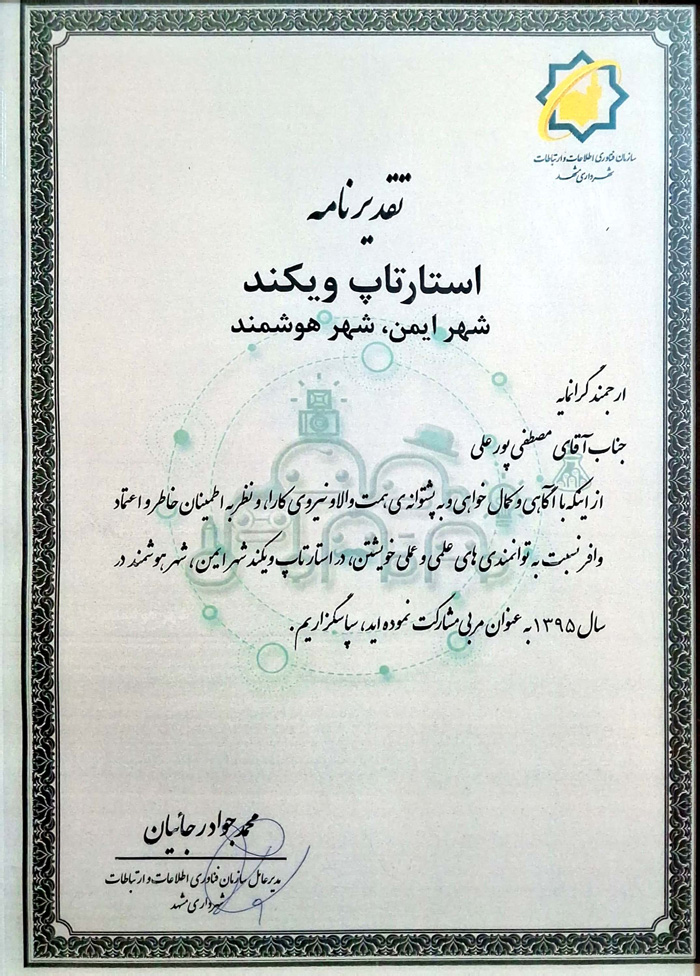 سازمان فناوری اطلاعات و ارتباطات
شهرداری مشهد
تقدیرنامه
استارتاپ ویکند
شهر ایمن، شهر هوشمند
ارجمند گرانمایه
جناب آقای مصطفی پورعلی
از اینکه با آگاهی و کمال خواهی و به پشتوانه‌ی همت والا و نیروی کارا، و نظر به اطمینان خاطر و اعتماد
وافر نسبت به توانمندی های علمی و عملی خویشتن، در استارتاپ ویکند شهر ایمن، شهر هوشمند در
سال ۱۳۹۵ به عنوان مربی مشارکت نموده اید، سپاسگزاریم.
محمد جواد رجائیان
مدیرعامل سازمان فناوری اطلاعات و ارتباطات
شهرداری مشهد